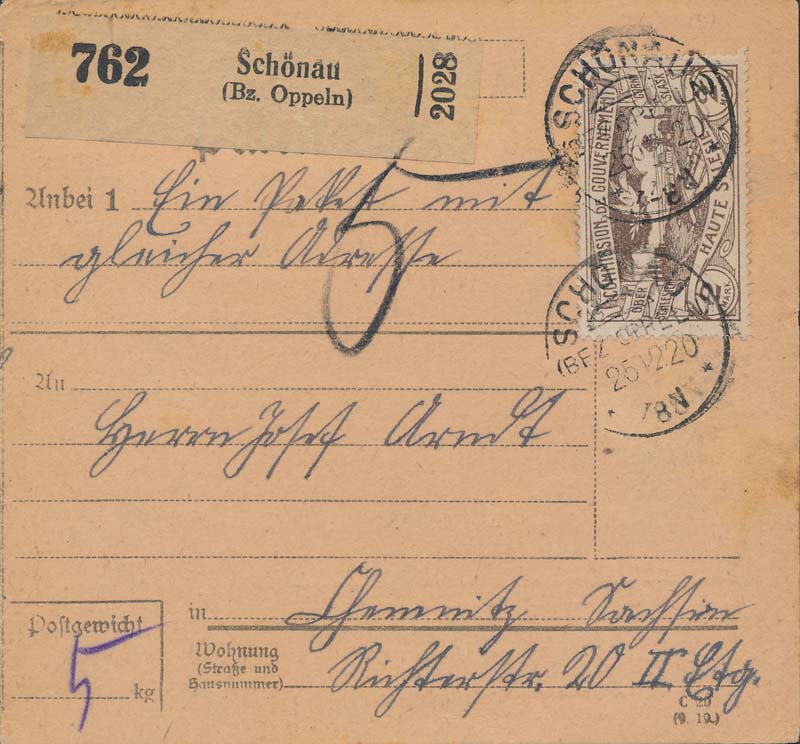 762 Schönau 2028
(Bz. Oppeln)
Anbei 1 Ein Paket mit
5
gleicher Adresse
An
Herrn Josef Arndt
COMMISSION DE GOUVERNEMENT
HAUTE SILÉSIE
OBER SCHLESIEN
GORNY ŚLĄSK
2 MARK
SCHÖNAU
SCHÖNAU
(BEZ. OPPELN)
25.12.20
in Chemnitz Sachsen
Postgewicht
5 kg
Wohnung
(Straße und
Hausnummer)
Richterstr. 20 II Etg.
C 20
(9. 19.)